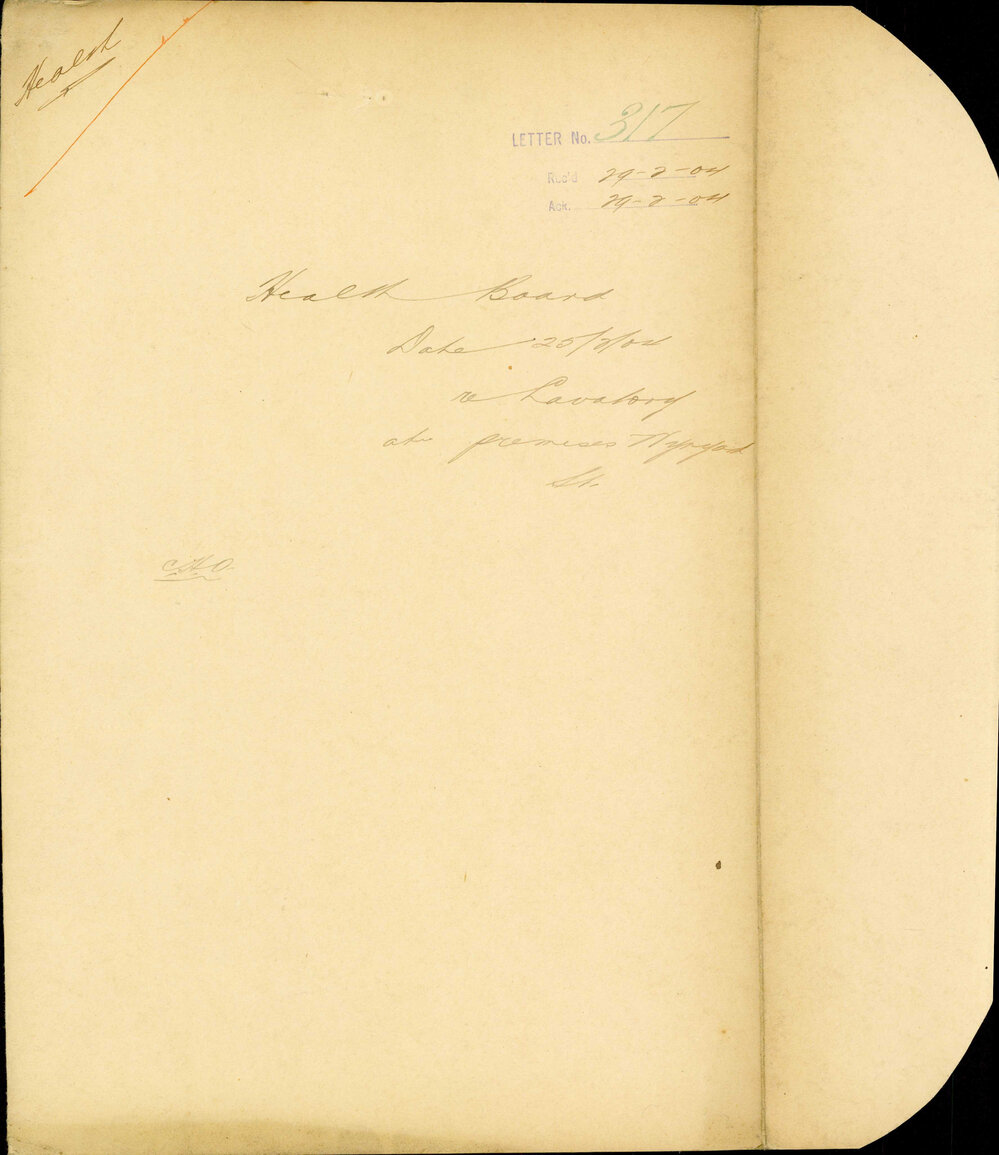 Health
LETTER No. 317
Rec'd 29-2-04
Ack. 29-2-04
Health Board
Date 25/2/04
re Lavatory
at premises Wynyard
St.
C.H.O.